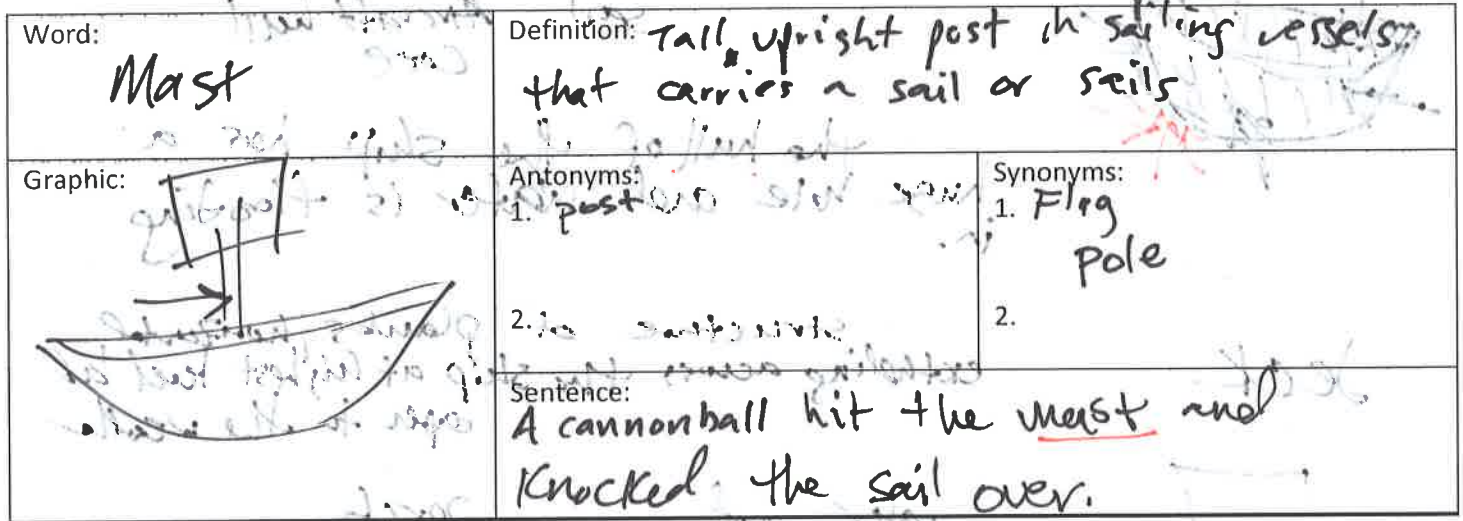 Word:
Mast
Definition: Tall, upright post in sailing vessels
that carries a sail or sails
Graphic:
Antonyms:
1. post
2.
Synonyms:
1. Flag
pole
2.
Sentence:
A cannonball hit the mast and
knocked the sail over.